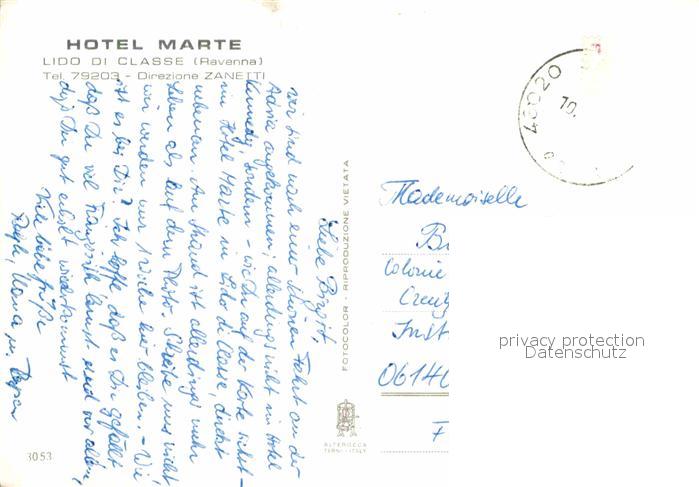 HOTEL MARTE
LIDO DI CLASSE (Ravenna)
Tel. 79203 - Direzione ZANETTI
Liebe Birgit,
wir sind nach einer schönen Fahrt an der
Adria angekommen, allerdings nicht im Hotel
Kennedy, sondern - wie Du auf der Karte siehst -
im Hotel Marte in Lido di Classe, direkt
nebenan. Am Strand ist allerdings mehr
Leben als auf dem Photo. Schreibe uns nicht
wir werden nur 1 Woche hier bleiben. - Wie
ist es bei Dir? Ich hoffe daß es Dir gefällt
daß Du viel Französisch lernst und vor allem,
daß Du gut erholt wiederkommst
Viele liebe Grüße
Mama u. Papa
3053
FOTOCOLOR - RIPRODUZIONE VIETATA
ALTEROCCA
TERNI - ITALY
48020
10.
Mademoiselle
Colonie
Inst
06140
F
privacy protection
Datenschutz